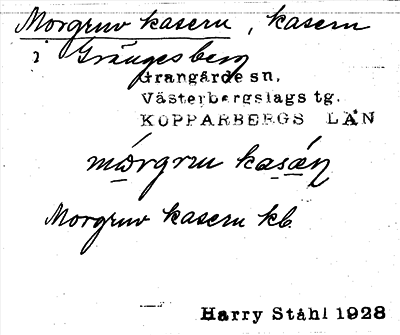 Morgruv kasern, kasern
i Grängesberg
Grangärde sn,
Västerbergslags tg.
KOPPARBERGS LÄN
mórgruu kasàṇ
Morgruv kasern kb.
Harry Ståhl 1928